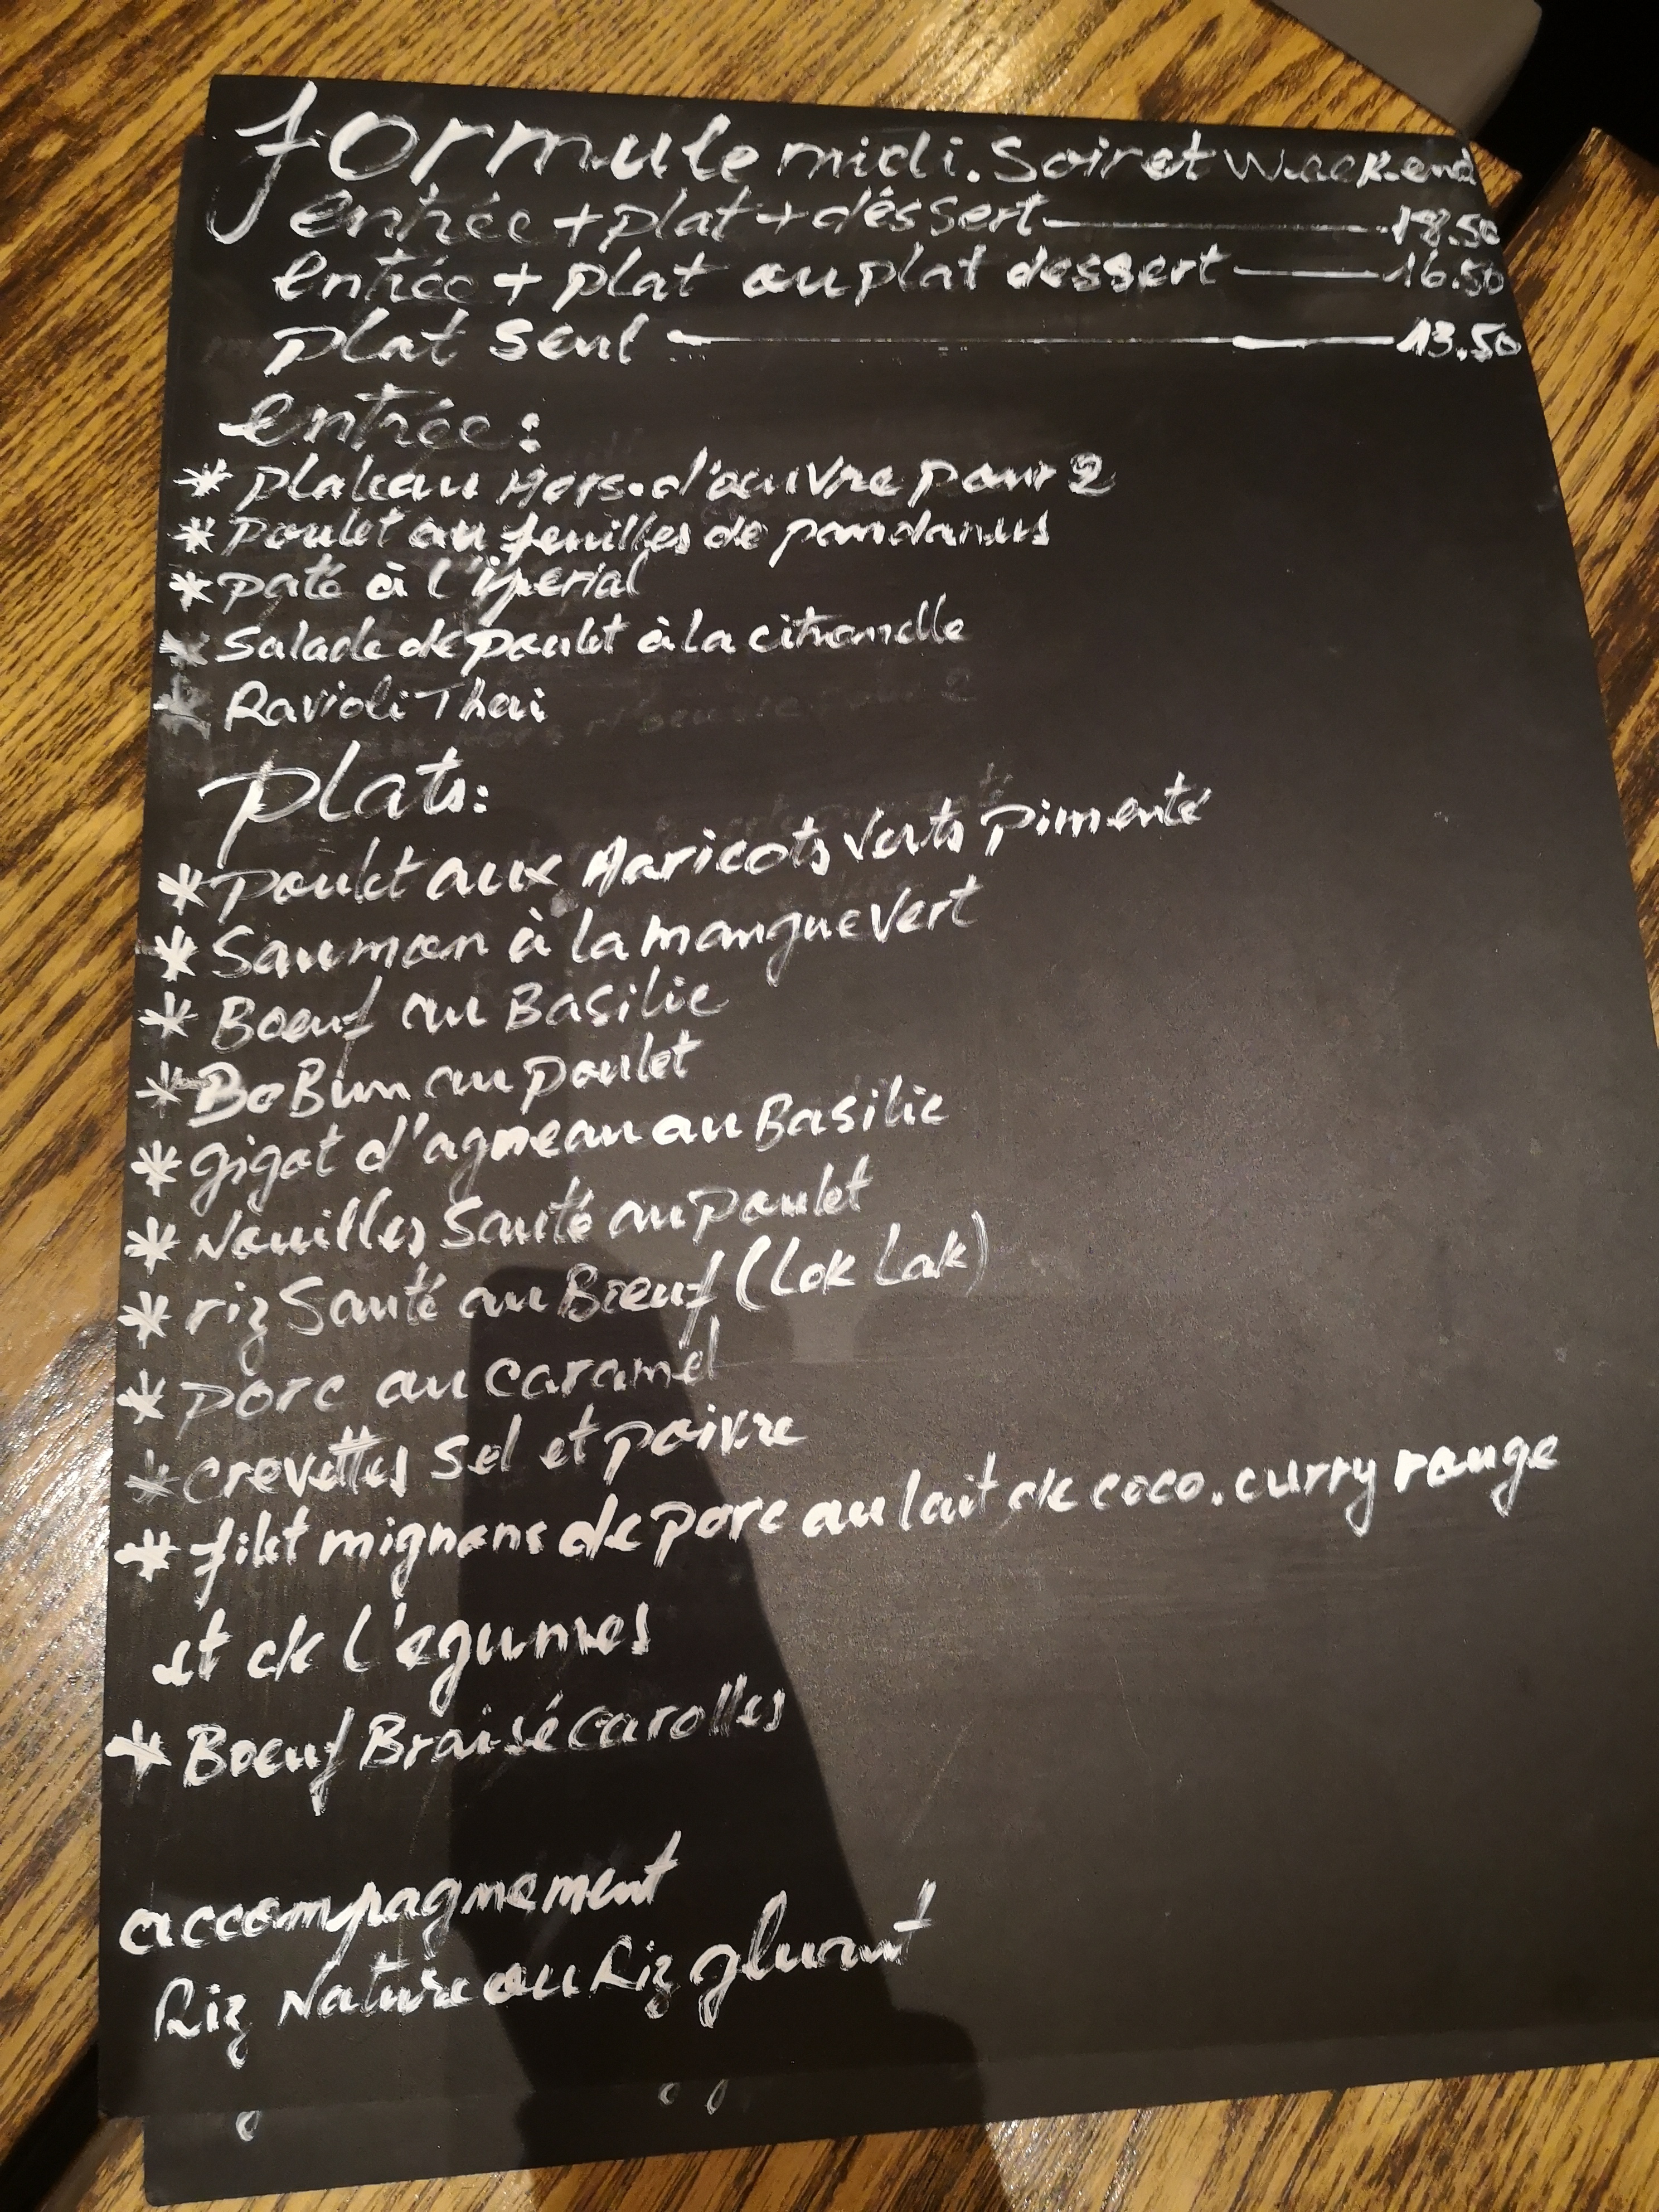 formule midi. Soir et Week.end
entrée + plat + déssert 18.50
entrée + plat ou plat dessert 16.50
plat seul 13.50
entrée :
* plateau Hors.d'oeuvre pour 2
* Poulet au feuilles de pandanus
* paté à l'iperial
* Salade de poulet à la citronelle
* Ravioli Thai
plats :
* Poulet aux Haricots Verts Pimenté
* Saumon à la mangue Vert
* Boeuf au Basilic
* BoBun au poulet
* gigot d'agneau au Basilic
* Nouilles Sauté au poulet
* riz Sauté au Boeuf (Lok Lak)
* porc au caramel
* crevettes Sel et poivre
* filet mignons de porc au lait de coco. curry rouge
et de l'egumes
* Boeuf Braisé carottes
accompagnement
Riz Nature ou Riz gluant